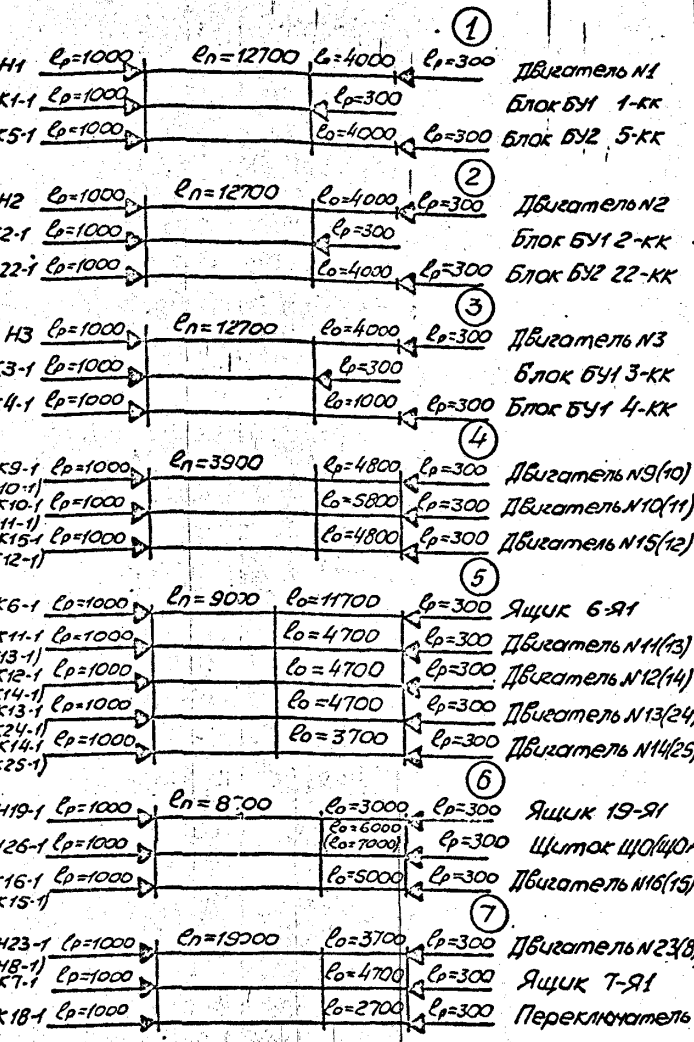 1
Н1 ℓр=1000 ℓп=12700 ℓо=4000 ℓр=300 Двигатель N1
К1-1 ℓр=1000 ℓр=300 Блок БУ1 1-КК
К5-1 ℓр=1000 ℓо=4000 ℓр=300 Блок БУ2 5-КК
2
Н2 ℓр=1000 ℓп=12700 ℓо=4000 ℓр=300 Двигатель N2
2-1 ℓр=1000 ℓр=300 Блок БУ1 2-КК
22-1 ℓр=1000 ℓо=4000 ℓр=300 Блок БУ2 22-КК
3
Н3 ℓр=1000 ℓп=12700 ℓо=4000 ℓр=300 Двигатель N3
К3-1 ℓр=1000 ℓр=300 Блок БУ1 3-КК
4-1 ℓр=1000 ℓо=1000 ℓр=300 Блок БУ1 4-КК
4
К9-1 ℓр=1000 ℓп=3900 ℓр=4800 ℓр=300 Двигатель N9(10)
10-1)
К10-1 ℓр=1000 ℓо=5800 ℓр=300 Двигатель N10(11)
11-1)
К15-1 ℓр=1000 ℓо=4800 ℓр=300 Двигатель N15(12)
12-1)
5
К6-1 ℓр=1000 ℓп=9000 ℓо=11700 ℓр=300 Ящик 6-Я1
К11-1 ℓр=1000 ℓо=4700 ℓр=300 Двигатель N11(13)
13-1)
К12-1 ℓр=1000 ℓо=4700 ℓр=300 Двигатель N12(14)
К14-1)
К13-1 ℓр=1000 ℓо=4700 ℓр=300 Двигатель N13(24)
К24-1)
К14-1 ℓр=1000 ℓо=3700 ℓр=300 Двигатель N14(25)
К25-1)
6
Н19-1 ℓр=1000 ℓо=3000 ℓр=300 Ящик 19-Я1
26-1 ℓр=1000 ℓо=6000 ℓр=300 Щиток ЩО(ЩОА
(ℓо=7000)
К16-1 ℓр=1000 ℓо=5000 ℓр=300 Двигатель N16(15)
К15-1)
7
Н23-1 ℓр=1000 ℓп=19000 ℓо=3700 ℓр=300 Двигатель N23(8)
Н8-1)
К7-1 ℓр=1000 ℓо=4700 ℓр=300 Ящик 7-Я1
К18-1 ℓр=1000 ℓо=2700 ℓр=300 Переключатель